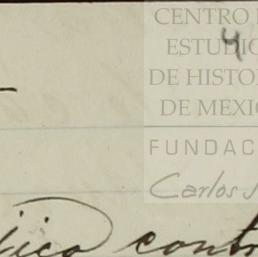 CENTRO
ESTUDIO
4
DE HISTO
DE MÉXIC
FUNDAC
Carlos
contr